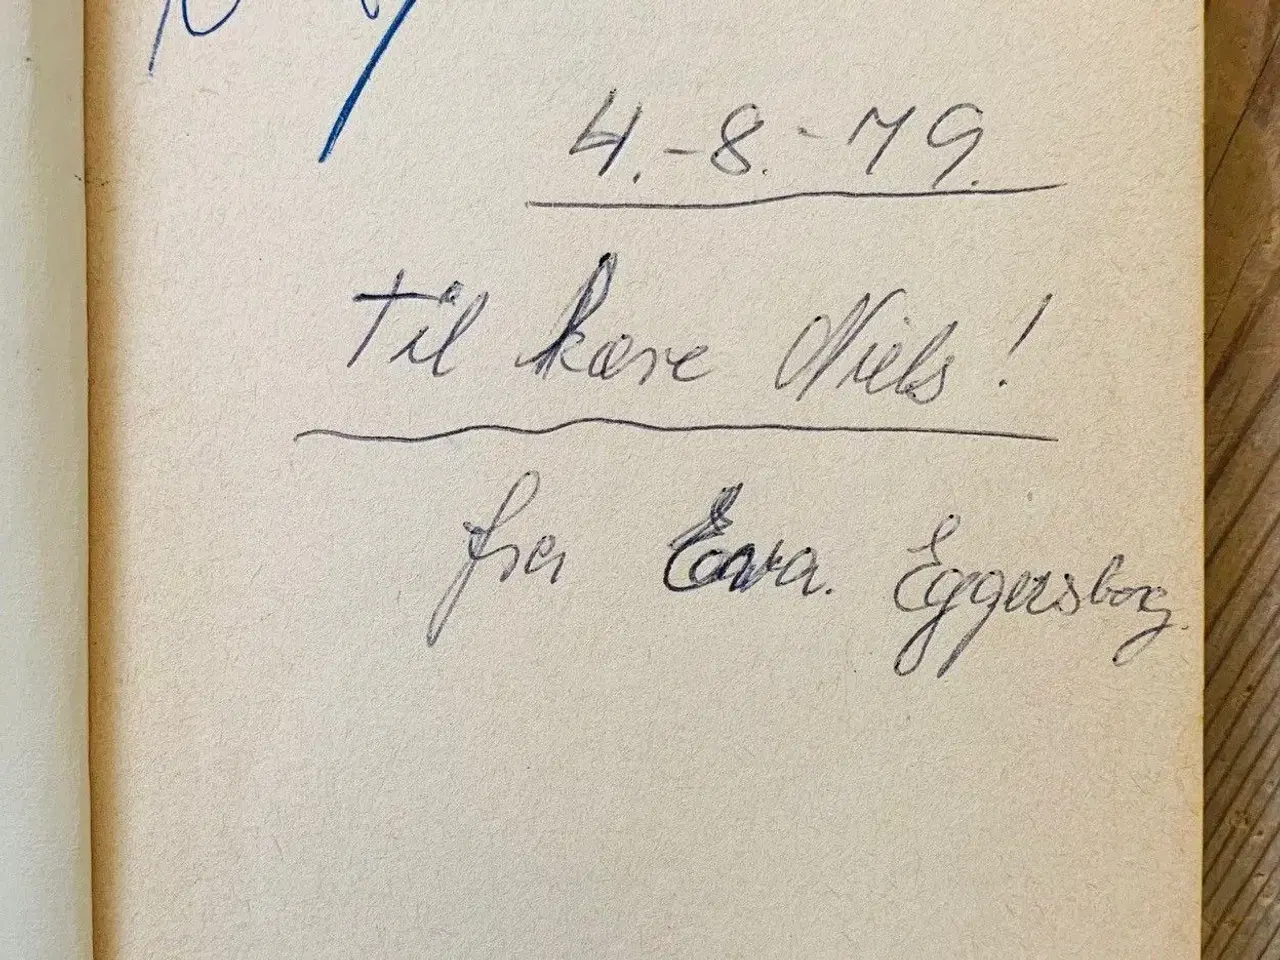 4.-8.-79.
Til kære Niels!
fra Eva. Eggersborg.